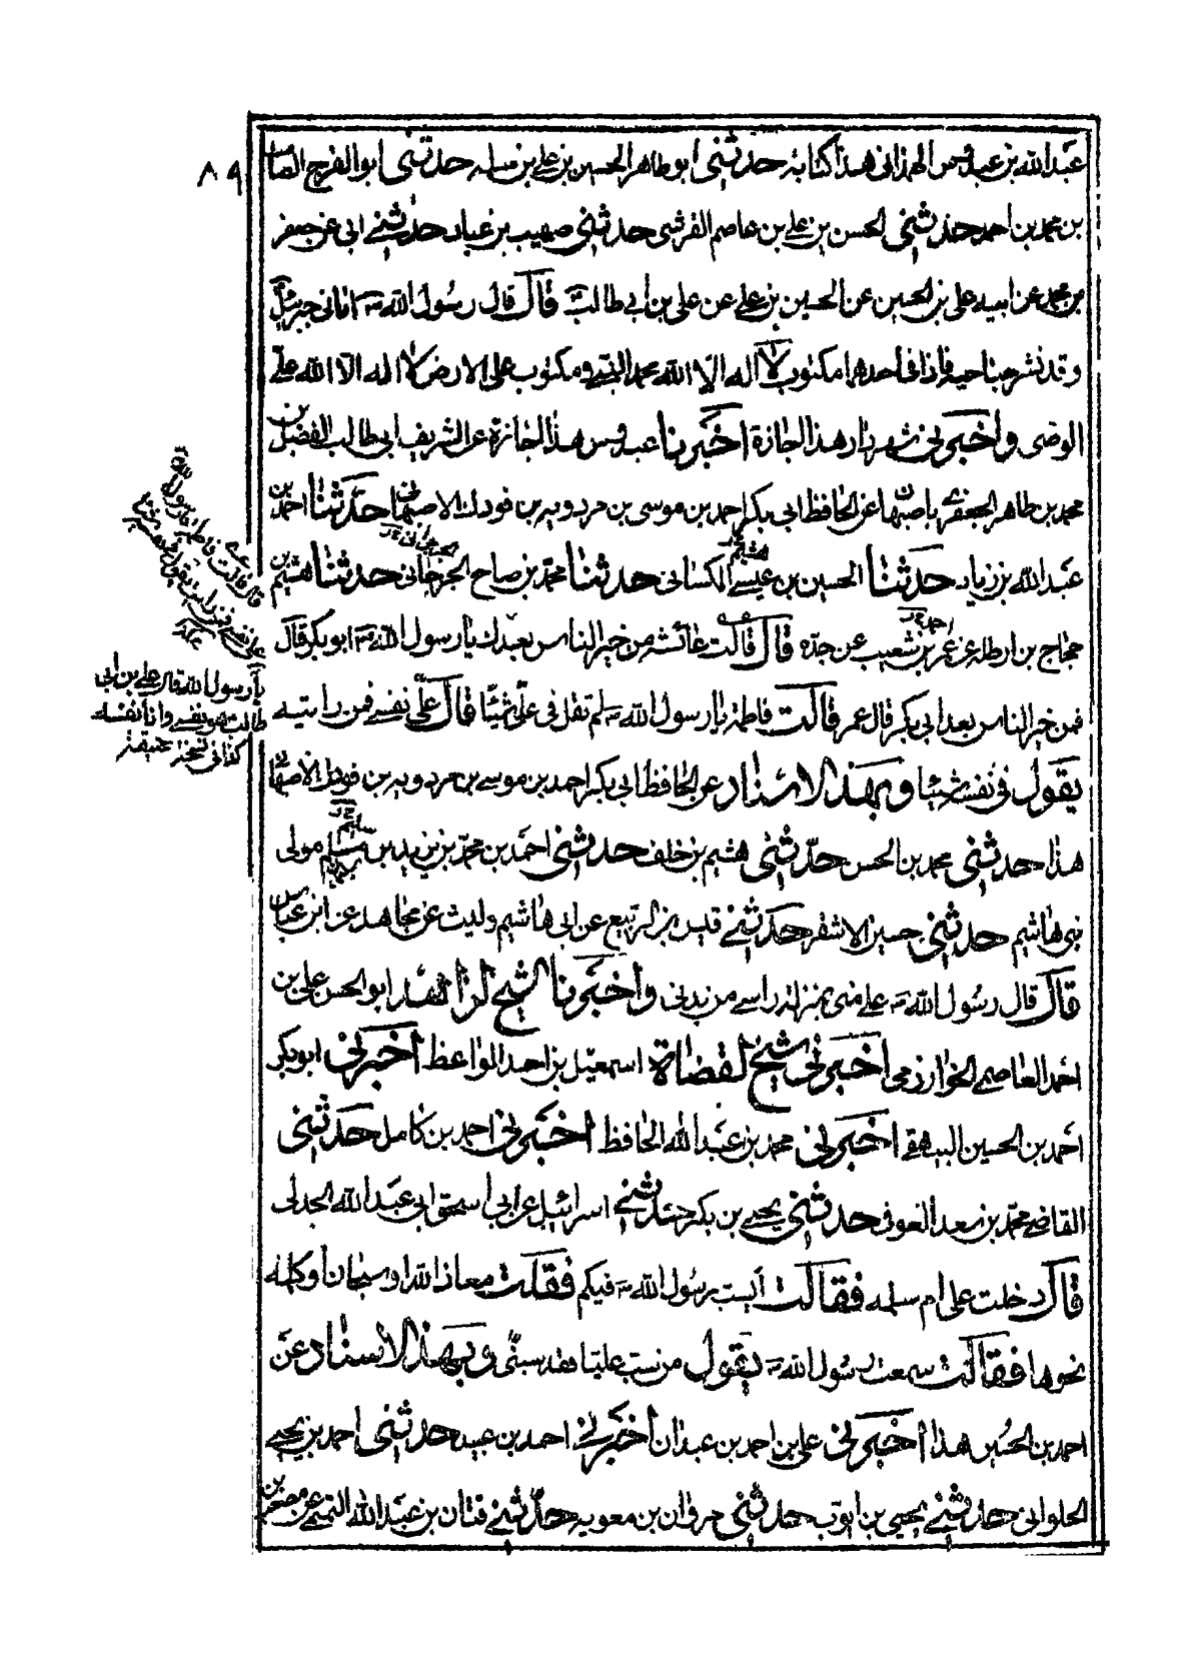 ٨٩
عبد الله بن عبدوس الهمذانى هذا كتابة حدثنى ابو طاهر الحسين بن على بن سلمه حدثنى ابو الفرج الصامت
بن محمد بن احمد حدثنى الحسن بن على بن عاصم القرشى حدثنى صهيب بن عباد حدثنى ابى عن جعفر
بن محمد عن ابيه على بن الحسين عن الحسين بن على عن على بن ابى طالب قال قال رسول الله اتانى جبرئيل
وقد نشر جناحيه فاذا فى احدهما مكتوب لا اله الا الله محمد النبى ومكتوب على الارض لا اله الا الله على
الوصى واخبرنى شهردار هذا اجازة اخبرنا عبدوس هذا اجازة عن الشريف ابى طالب المفضل بن
محمد بن طاهر الجعفرى باصبهان عن الحافظ ابى بكر احمد بن موسى بن مردويه بن فورك الاصبهانى حدثنا احمد بن
عبد الله بن زياد حدثنا الحسين بن عيسى الكسائى حدثنا محمد بن صباح الجرجانى حدثنا هشيم بن
حجاج بن ارطاه عن عمر بن شعيب عن جده قال قالت عائشه من خير الناس بعدك يا رسول الله ابو بكر قال
فمن خير الناس بعد ابى بكر قال عمر قالت فاطمة يا رسول الله لم تقل فى على شيئا قال على نفسى فمن رايتيه
يقول فى نفسه شيئا وبهذا الاسناد عن الحافظ ابى بكر احمد بن موسى بن مردويه بن فورك الاصبهانى
هذا حدثنى محمد بن الحسن حدثنى هشيم بن خلف حدثنى احمد بن محمد بن يزيد بن سليم مولى
بنى هاشم حدثنى حسين الاشقر حدثنى قيس بن الربيع عن ابى هاشم وليث عن مجاهد عن ابن عباس
قال قال رسول الله على منى بمنزلة راسى من بدنى واخبرنا الشيخ الزاهد ابو الحسن على بن
احمد العاصمى الخوارزمى اخبرنى شيخ القضاة اسمعيل بن احمد الواعظ اخبرنى ابو بكر
احمد بن الحسين البيهقى اخبرنى محمد بن عبد الله الحافظ اخبرنى احمد بن كامل حدثنى
القاضى محمد بن سعد العوفى حدثنى يحيى بن بكر حدثنى اسرائيل عن ابى اسحق ابى عبد الله الجدلى
قال دخلت على ام سلمه فقالت ايسب رسول الله فيكم فقلت معاذ الله او سبحان او كلمة
نحوها فقالت سمعت رسول الله يقول من سب عليا فقد سبنى وبهذا الاسناد عن
احمد بن الحسين هذا اخبرنى على بن احمد بن عبدان اخبرنى احمد بن عبيد حدثنى احمد بن يحيى
الحلوانى حدثنى يحيى بن ايوب حدثنى مروان بن معويه حدثنى قنان بن عبد الله النهمى عن مصعب بن
قالت فاطمه يا رسول الله
يا رسول الله قال على بن ابى
طالب هو نفسى وانا نفسه
كذا فى نسخة عتيقة